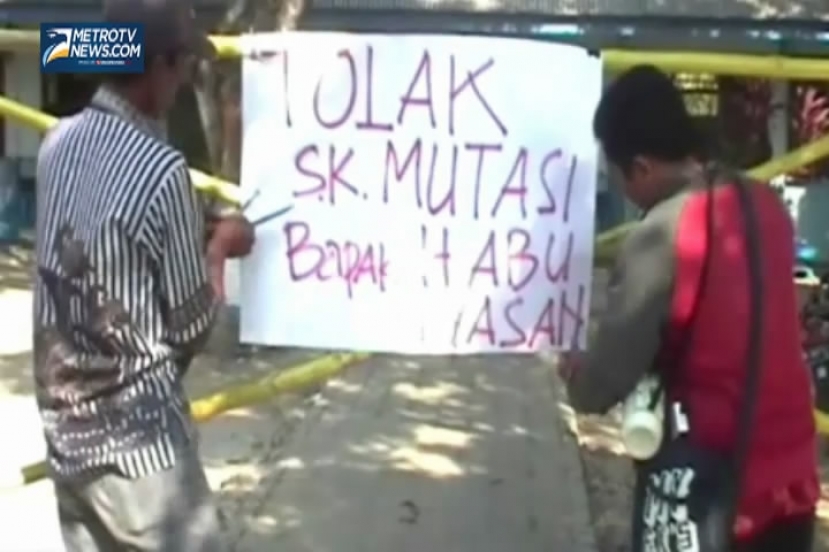 METROTV
NEWS.COM
TOLAK
S.K. MUTASI
Bapak H ABU
ASAN